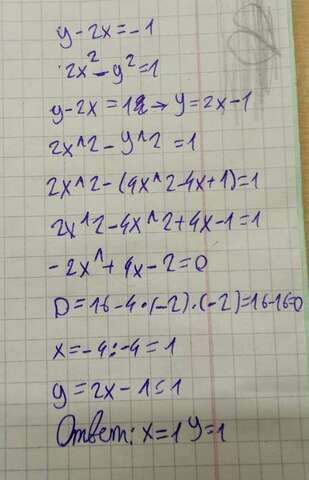 y-2x=-1
2x²-y²=1
y-2x=1→y=2x-1
2x^2-y^2=1
2x^2-(4x^2-4x+1)=1
2x^2-4x^2+4x-1=1
-2x^+4x-2=0
D=16-4·(-2)·(-2)=16-16=0
x=-4:-4=1
y=2x-1=1
Ответ: x=1 y=1